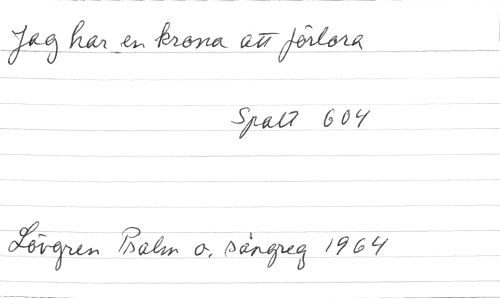 Jag har en krona att förlora
Spalt 604
Lövgren Psalm o. sångreg 1964